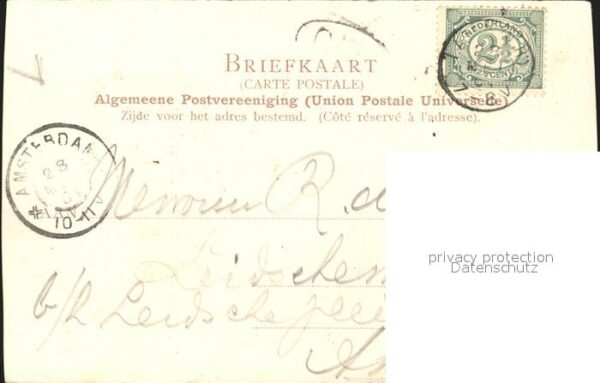 BRIEFKAART
(CARTE POSTALE)
Algemeene Postvereeniging (Union Postale Universelle)
Zijde voor het adres bestemd. (Côté réservé à l'adresse).
NEDERLAND
2½
CENT
7-8V
AMSTERDAM
28
AANK
10-11V
R. de
Leidsche
b/h Leidscheplei
A
privacy protection
Datenschutz